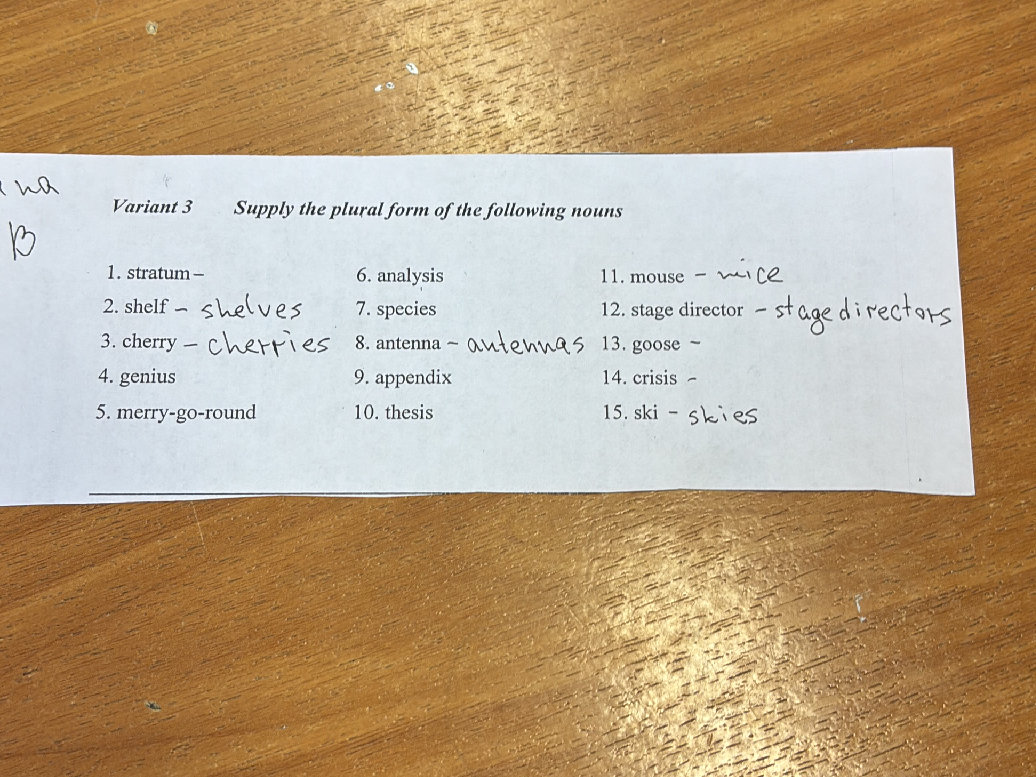 na
B
Variant 3 Supply the plural form of the following nouns
1. stratum –
2. shelf – shelves
3. cherry – cherries
4. genius
5. merry-go-round
6. analysis
7. species
8. antenna – antennas
9. appendix
10. thesis
11. mouse – mice
12. stage director – stage directors
13. goose –
14. crisis –
15. ski – skies